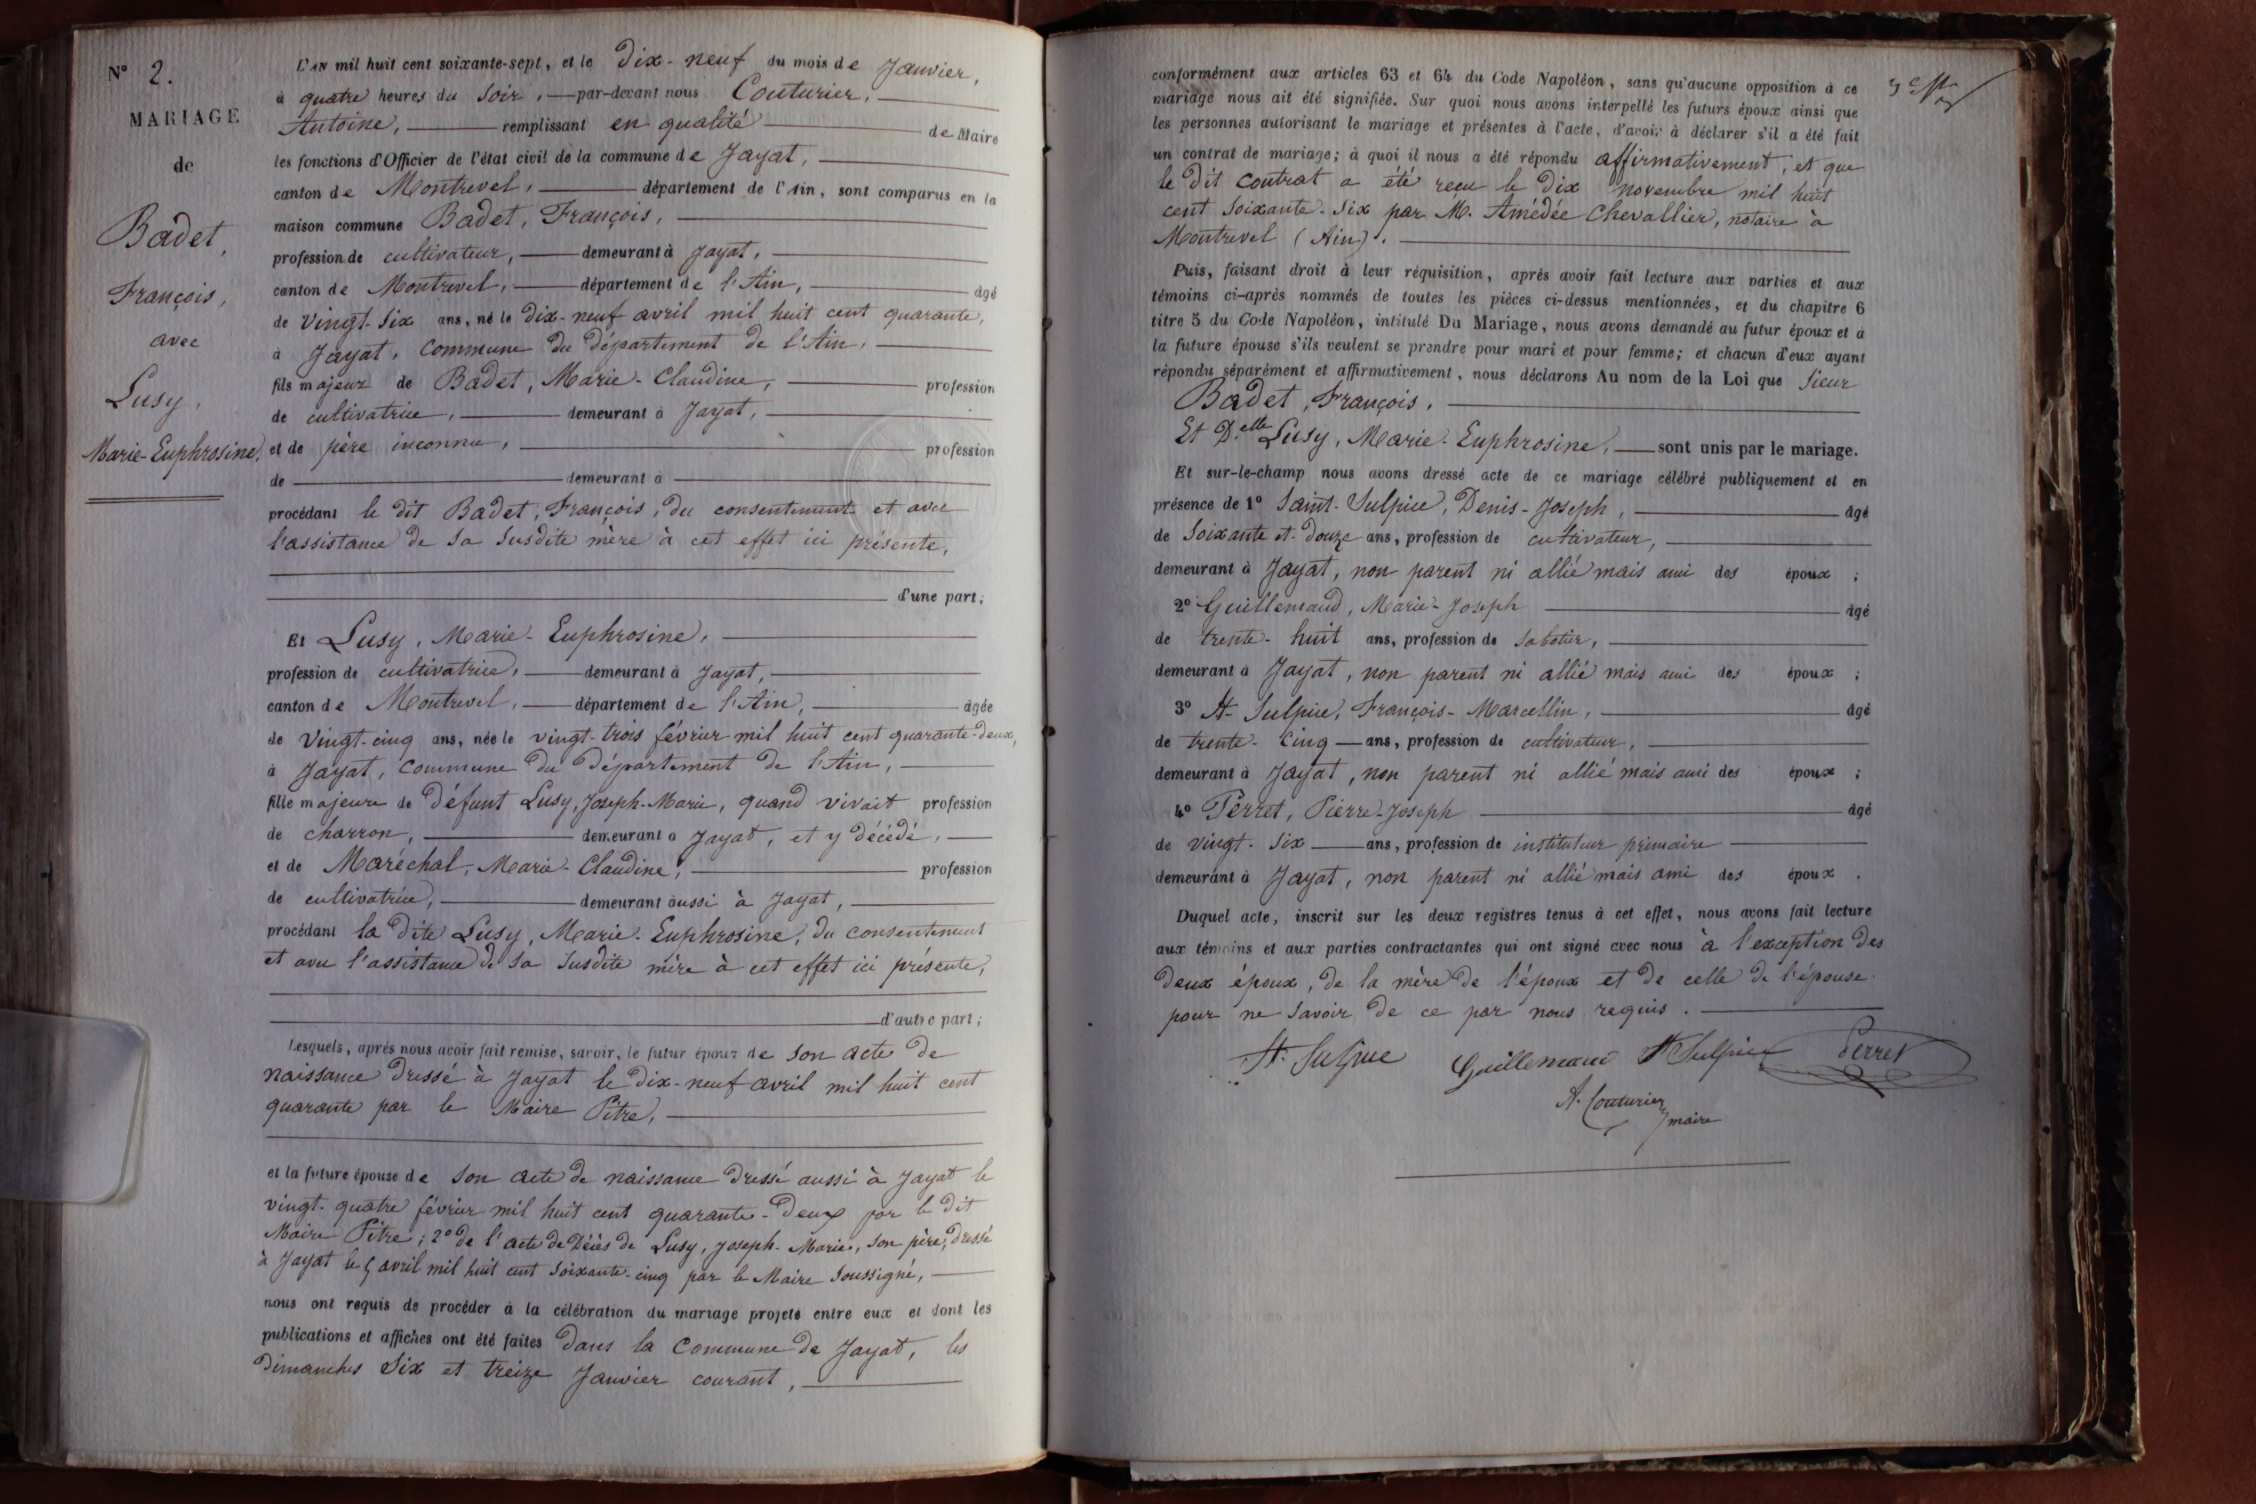 N° 2.
MARIAGE
de
Badet,
François,
avec
Lusy,
Marie-Euphrosine.
L'AN mil huit cent soixante-sept, et le dix-neuf du mois de Janvier,
à quatre heures du soir, par-devant nous Couturier,
Antoine, remplissant en qualité de Maire
les fonctions d'Officier de l'état civil de la commune de Jayat,
canton de Montrevel, département de l'Ain, sont comparus en la
maison commune Badet, François,
profession de cultivateur, demeurant à Jayat,
canton de Montrevel, département de l'Ain, âgé
de vingt-six ans, né le dix-neuf avril mil huit cent quarante,
à Jayat, commune du département de l'Ain,
fils majeur de Badet, Marie-Claudine, profession
de cultivatrice, demeurant à Jayat,
et de père inconnu, profession
de demeurant à
procédant le dit Badet, François, du consentement et avec
l'assistance de sa susdite mère à cet effet ici présente,
d'une part;
Et Lusy, Marie-Euphrosine,
profession de cultivatrice, demeurant à Jayat,
canton de Montrevel, département de l'Ain, âgée
de vingt-cinq ans, née le vingt-trois février mil huit cent quarante-deux,
à Jayat, commune du département de l'Ain,
fille majeure de défunt Lusy, Joseph-Marie, quand vivait profession
de charron, demeurant à Jayat, et y décédé,
et de Maréchal, Marie-Claudine, profession
de cultivatrice, demeurant aussi à Jayat,
procédant la dite Lusy, Marie-Euphrosine, du consentement
et avec l'assistance de sa susdite mère à cet effet ici présente,
d'autre part;
Lesquels, après nous avoir fait remise, savoir, le futur époux de son acte de
naissance dressé à Jayat le dix-neuf avril mil huit cent
quarante par le Maire Pitre,
et la future épouse de son acte de naissance dressé aussi à Jayat le
vingt-quatre février mil huit cent quarante-deux par le dit
Maire Pitre; 2° de l'acte de décès de Lusy, Joseph-Marie, son père, dressé
à Jayat le 5 avril mil huit cent soixante-cinq par le Maire soussigné,
nous ont requis de procéder à la célébration du mariage projeté entre eux et dont les
publications et affiches ont été faites dans la commune de Jayat, les
dimanches six et treize Janvier courant,
conformément aux articles 63 et 64 du Code Napoléon, sans qu'aucune opposition à ce
mariage nous ait été signifiée. Sur quoi nous avons interpellé les futurs époux ainsi que
les personnes autorisant le mariage et présentes à l'acte, d'avoir à déclarer s'il a été fait
un contrat de mariage; à quoi il nous a été répondu affirmativement, et que
le dit contrat a été reçu le dix novembre mil huit
cent soixante-six par M. Amédée Chevallier, notaire à
Montrevel (Ain).
Puis, faisant droit à leur réquisition, après avoir fait lecture aux parties et aux
témoins ci-après nommés de toutes les pièces ci-dessus mentionnées, et du chapitre 6
titre 5 du Code Napoléon, intitulé Du Mariage, nous avons demandé au futur époux et à
la future épouse s'ils veulent se prendre pour mari et pour femme; et chacun d'eux ayant
répondu séparément et affirmativement, nous déclarons Au nom de la Loi que sieur
Badet, François,
Et D.elle Lusy, Marie-Euphrosine, sont unis par le mariage.
Et sur-le-champ nous avons dressé acte de ce mariage célébré publiquement et en
présence de 1° Saint-Sulpice, Denis-Joseph, âgé
de soixante et-douze ans, profession de cultivateur,
demeurant à Jayat, non parent ni allié mais ami des époux;
2° Guillemaud, Marie-Joseph âgé
de trente-huit ans, profession de sabotier,
demeurant à Jayat, non parent ni allié mais ami des époux;
3° St-Sulpice, François-Marcellin, âgé
de trente-cinq ans, profession de cultivateur,
demeurant à Jayat, non parent ni allié mais ami des époux;
4° Perret, Pierre-Joseph âgé
de vingt-six ans, profession de instituteur primaire
demeurant à Jayat, non parent ni allié mais ami des époux.
Duquel acte, inscrit sur les deux registres tenus à cet effet, nous avons fait lecture
aux témoins et aux parties contractantes qui ont signé avec nous à l'exception des
deux époux, de la mère de l'époux et de celle de l'épouse
pour ne savoir de ce par nous requis.
St. Sulpice Guillemaud St Sulpice Perret
A. Couturier
maire